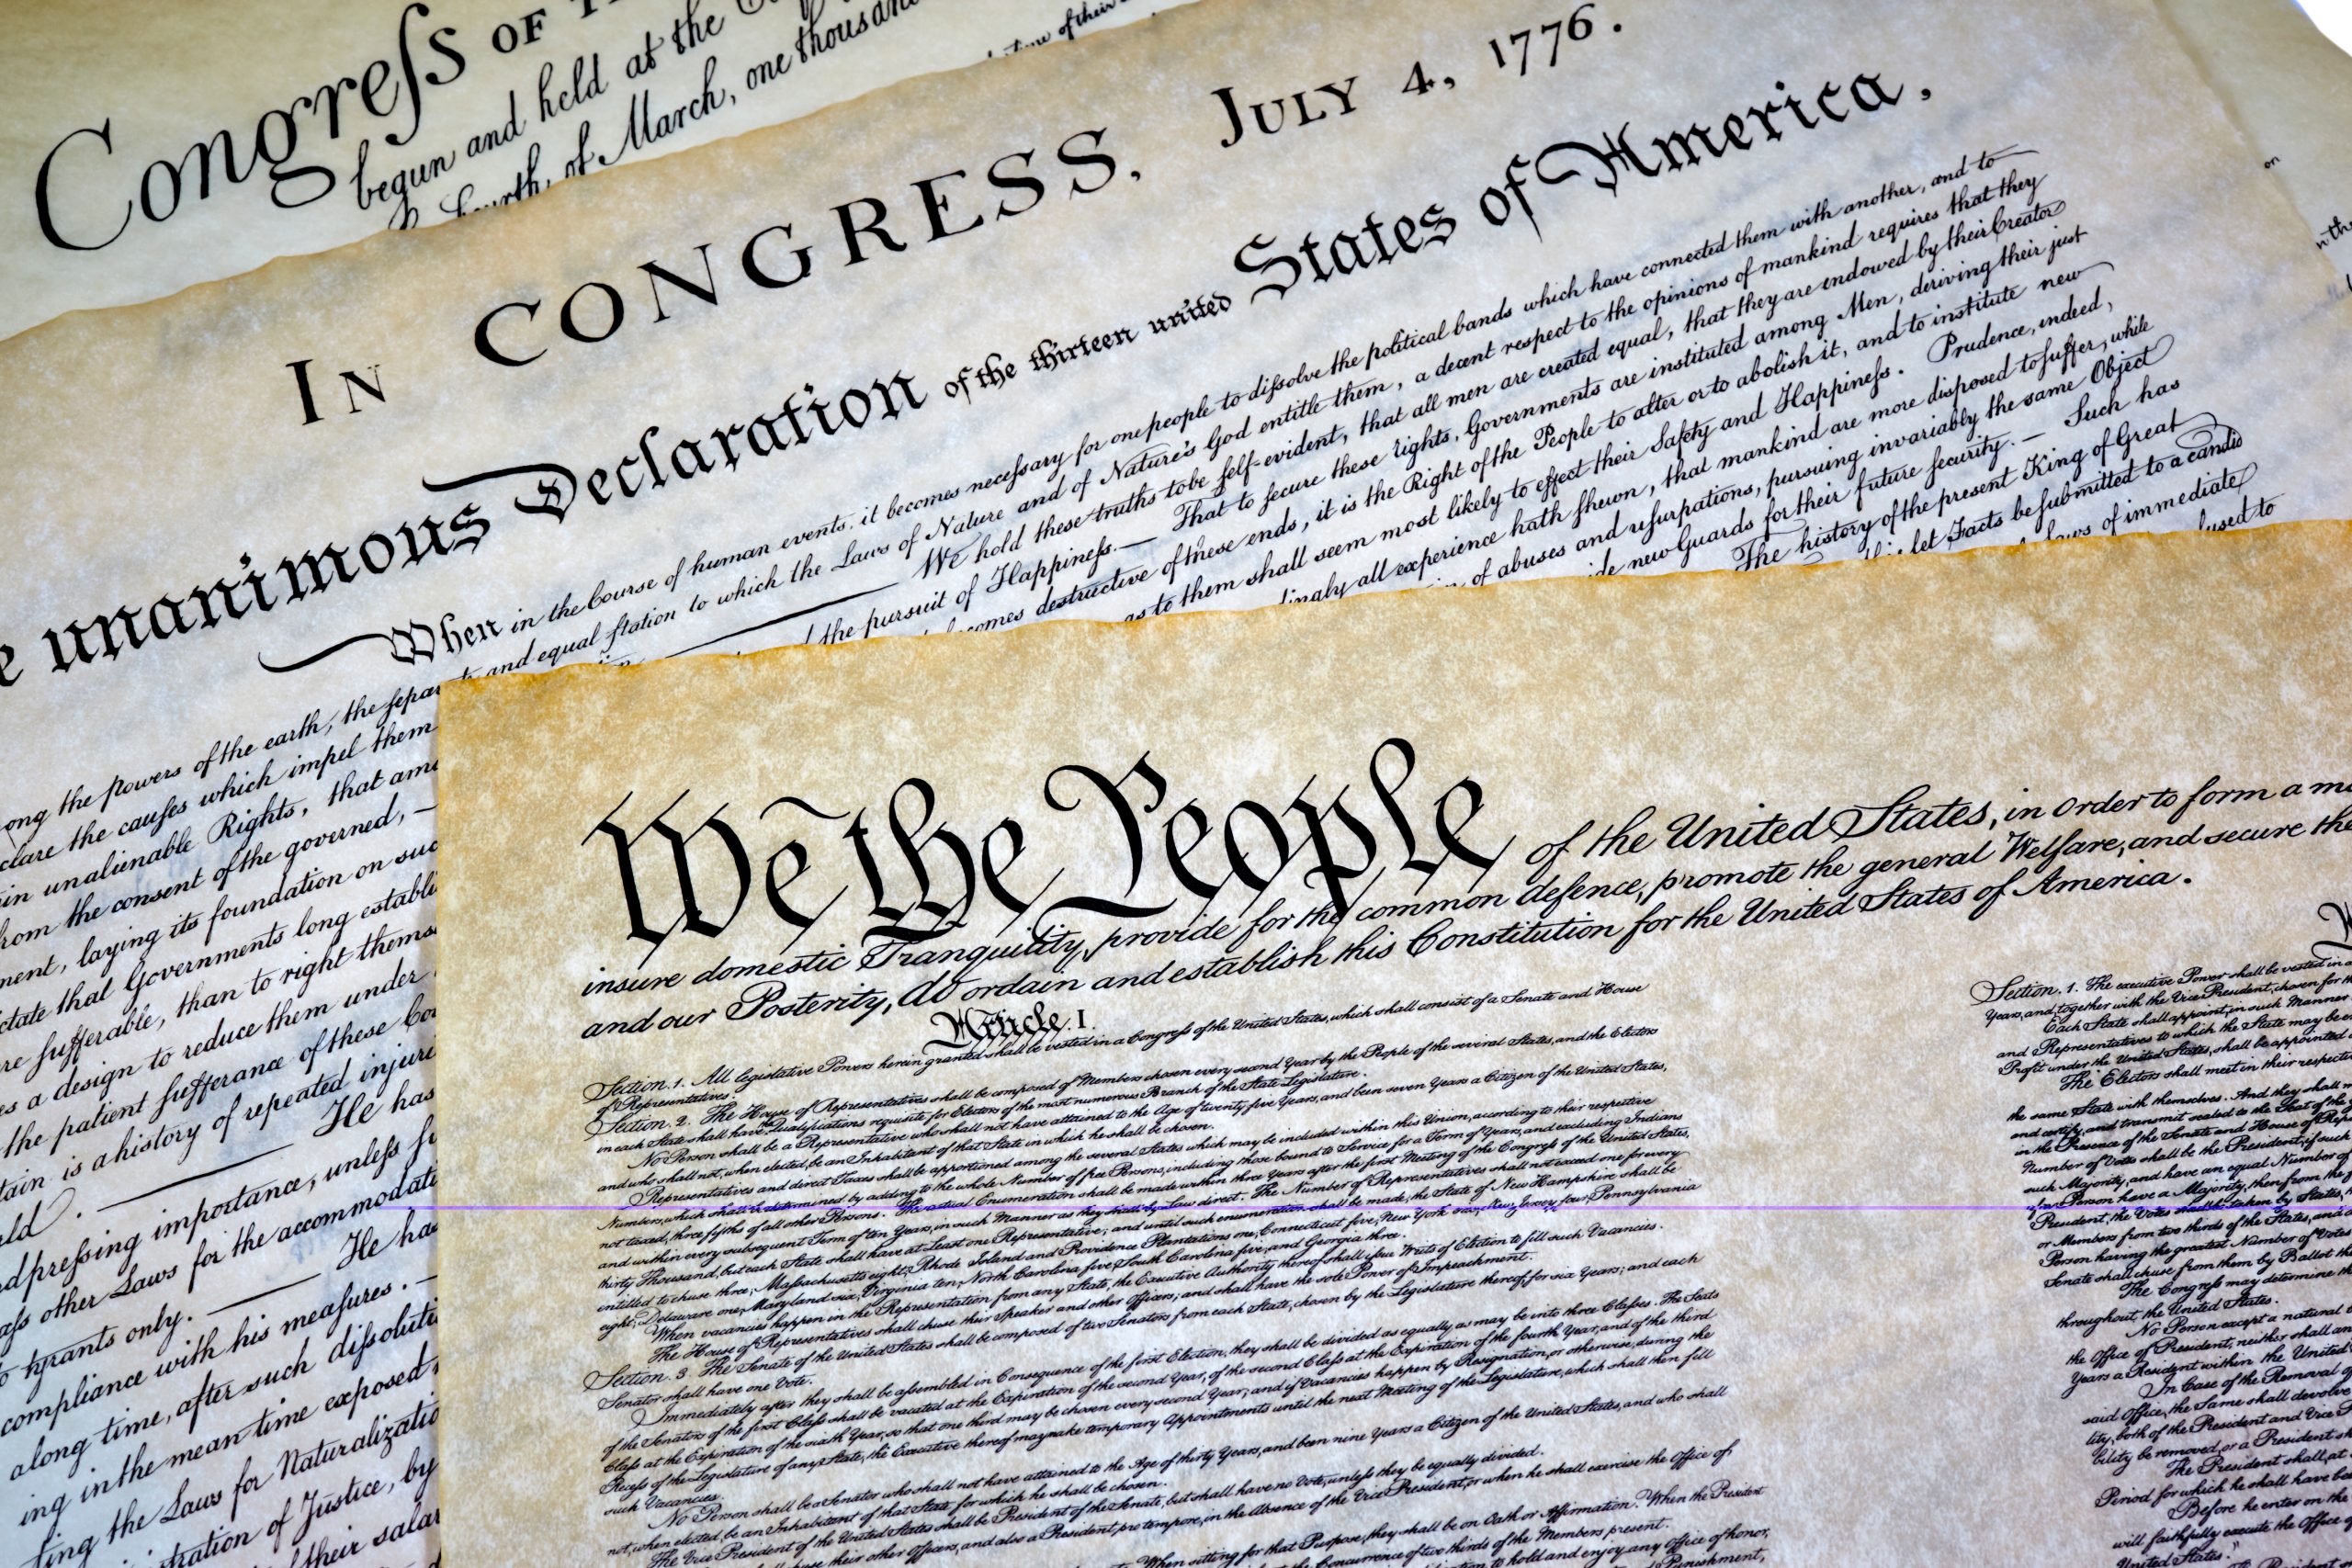 Congreſs OF
begun and held at the
Fourth of March, one thousand
IN CONGRESS, JULY 4, 1776.
unanimous Declaration of the thirteen united States of America,
When in the Course of human events, it becomes neceſsary for one people to diſsolve the political bands which have connected them with another, and to
among the powers of the earth, the ſepar and equal ſtation to which the Laws of Nature and of Nature's God entitle them, a decent respect to the opinions of mankind requires that they
the cauſes which impel them We hold these truths to be ſelf-evident, that all men are created equal, that they are endowed by their Creator
unalienable Rights, that the pursuit of Happineſs.— That to ſecure these rights, Governments are instituted among Men, deriving their just
from the consent of the governed,— destructive of these ends, it is the Right of the People to alter or to abolish it, and to institute new
laying its foundation on as to them shall seem most likely to effect their Safety and Happineſs. Prudence, indeed,
that Governments long all experience hath ſhewn, that mankind are more disposed to ſuffer, while
ſufferable, than to right of abuses and uſurpations, pursuing invariably the same Object
a design to reduce them under new Guards for their future ſecurity.— Such has
the patient ſufferance of these The history of the present King of Great
is a history of repeated let Facts be ſubmitted to a candid
He has Laws of immediate
preſsing importance, unleſs to
other Laws for the
tyrants only. He
compliance with his meaſures.—
long time, after such
ing in the mean time exposed
the Laws for Naturalizatio
of Justice, by
their
We the People of the United States, in Order to form a
insure domestic Tranquility, provide for the common defence, promote the general Welfare, and secure the
and our Posterity, do ordain and establish this Constitution for the United States of America.
Article. I.
Section. 1. All legislative Powers herein granted shall be vested in a Congreſs of the United States, which shall consist of a Senate and House
of Representatives.
Section. 2. The House of Representatives shall be composed of Members chosen every second Year by the People of the several States, and the Electors
in each State shall have Qualifications requisite for Electors of the most numerous Branch of the State Legislature.
No Person shall be a Representative who shall not have attained to the Age of twenty five Years, and been seven Years a Citizen of the United States,
and who shall not, when elected, be an Inhabitant of that State in which he shall be chosen.
Representatives and direct Taxes shall be apportioned among the several States which may be included within this Union, according to their respective
Numbers, which shall be determined by adding to the whole Number of free Persons, including those bound to Service for a Term of Years, and excluding Indians
not taxed, three fifths of all other Persons. The actual Enumeration shall be made within three Years after the first Meeting of the Congreſs of the United States,
and within every subsequent Term of ten Years, in such Manner as they shall by Law direct. The Number of Representatives shall not exceed one for every
thirty Thousand, but each State shall have at Least one Representative; and until such enumeration shall be made, the State of New Hampshire shall be
entitled to chuse three, Maſsachusetts eight, Rhode Island and Providence Plantations one, Connecticut five, New York six, New Jersey four, Pennsylvania
eight, Delaware one, Maryland six, Virginia ten, North Carolina five, South Carolina five, and Georgia three.
When vacancies happen in the Representation from any State, the Executive Authority thereof shall iſsue Writs of Election to fill such Vacancies.
The House of Representatives shall chuse their Speaker and other Officers; and shall have the sole Power of Impeachment.
Section. 3. The Senate of the United States shall be composed of two Senators from each State, chosen by the Legislature thereof, for six Years; and each
Senator shall have one Vote.
Immediately after they shall be aſsembled in Consequence of the first Election, they shall be divided as equally as may be into three Claſses. The Seats
of the Senators of the first Claſs shall be vacated at the Expiration of the second Year, of the second Claſs at the Expiration of the fourth Year, and of the third
Claſs at the Expiration of the sixth Year, so that one third may be chosen every second Year; and if Vacancies happen by Resignation, or otherwise, during the
Receſs of the Legislature of any State, the Executive thereof may make temporary Appointments until the next Meeting of the Legislature, which shall then fill
such Vacancies.
No Person shall be a Senator who shall not have attained to the Age of thirty Years, and been nine Years a Citizen of the United States, and who shall
not, when elected, be an Inhabitant of that State for which he shall be chosen.
The Vice President of the United States shall be President of the Senate, but shall have no Vote, unleſs they be equally divided.
their other Officers, and also a President pro tempore, in the Absence of the Vice President, or when he shall exercise the Office of
When sitting for that Purpose, they shall be on Oath or Affirmation. When the President
the Concurrence of two thirds of the Members present.
to hold and enjoy any Office of honor,
Punishment,
Section. 1. The executive Power shall be vested in
Years, and, together with the Vice President, chosen for
Each State shall appoint, in such Manner
and Representatives to which the State may be
Profit under the United States, shall be appointed
The Electors shall meet in their
the same State with themselves. And they shall
and certify, and transmit sealed to the Seat of the
in the Presence of the Senate and House of
Number of Votes shall be the President, if such
such Majority, and have an equal Number of
Person have a Majority, then from the
President, the Votes shall be taken by States,
or Members from two thirds of the States, and
Person having the greatest Number of Votes
Senate shall chuse from them by Ballot the
The Congreſs may determine
throughout the United States.
No Person except a natural
the Office of President, neither shall
Years a Resident within the United
In Case of the Removal
said Office, the Same shall devolve
both of the President and Vice
bility be removed, or a President
The President shall, at
Period for which he shall have
Before he enter on the
will faithfully execute the Office
United States."